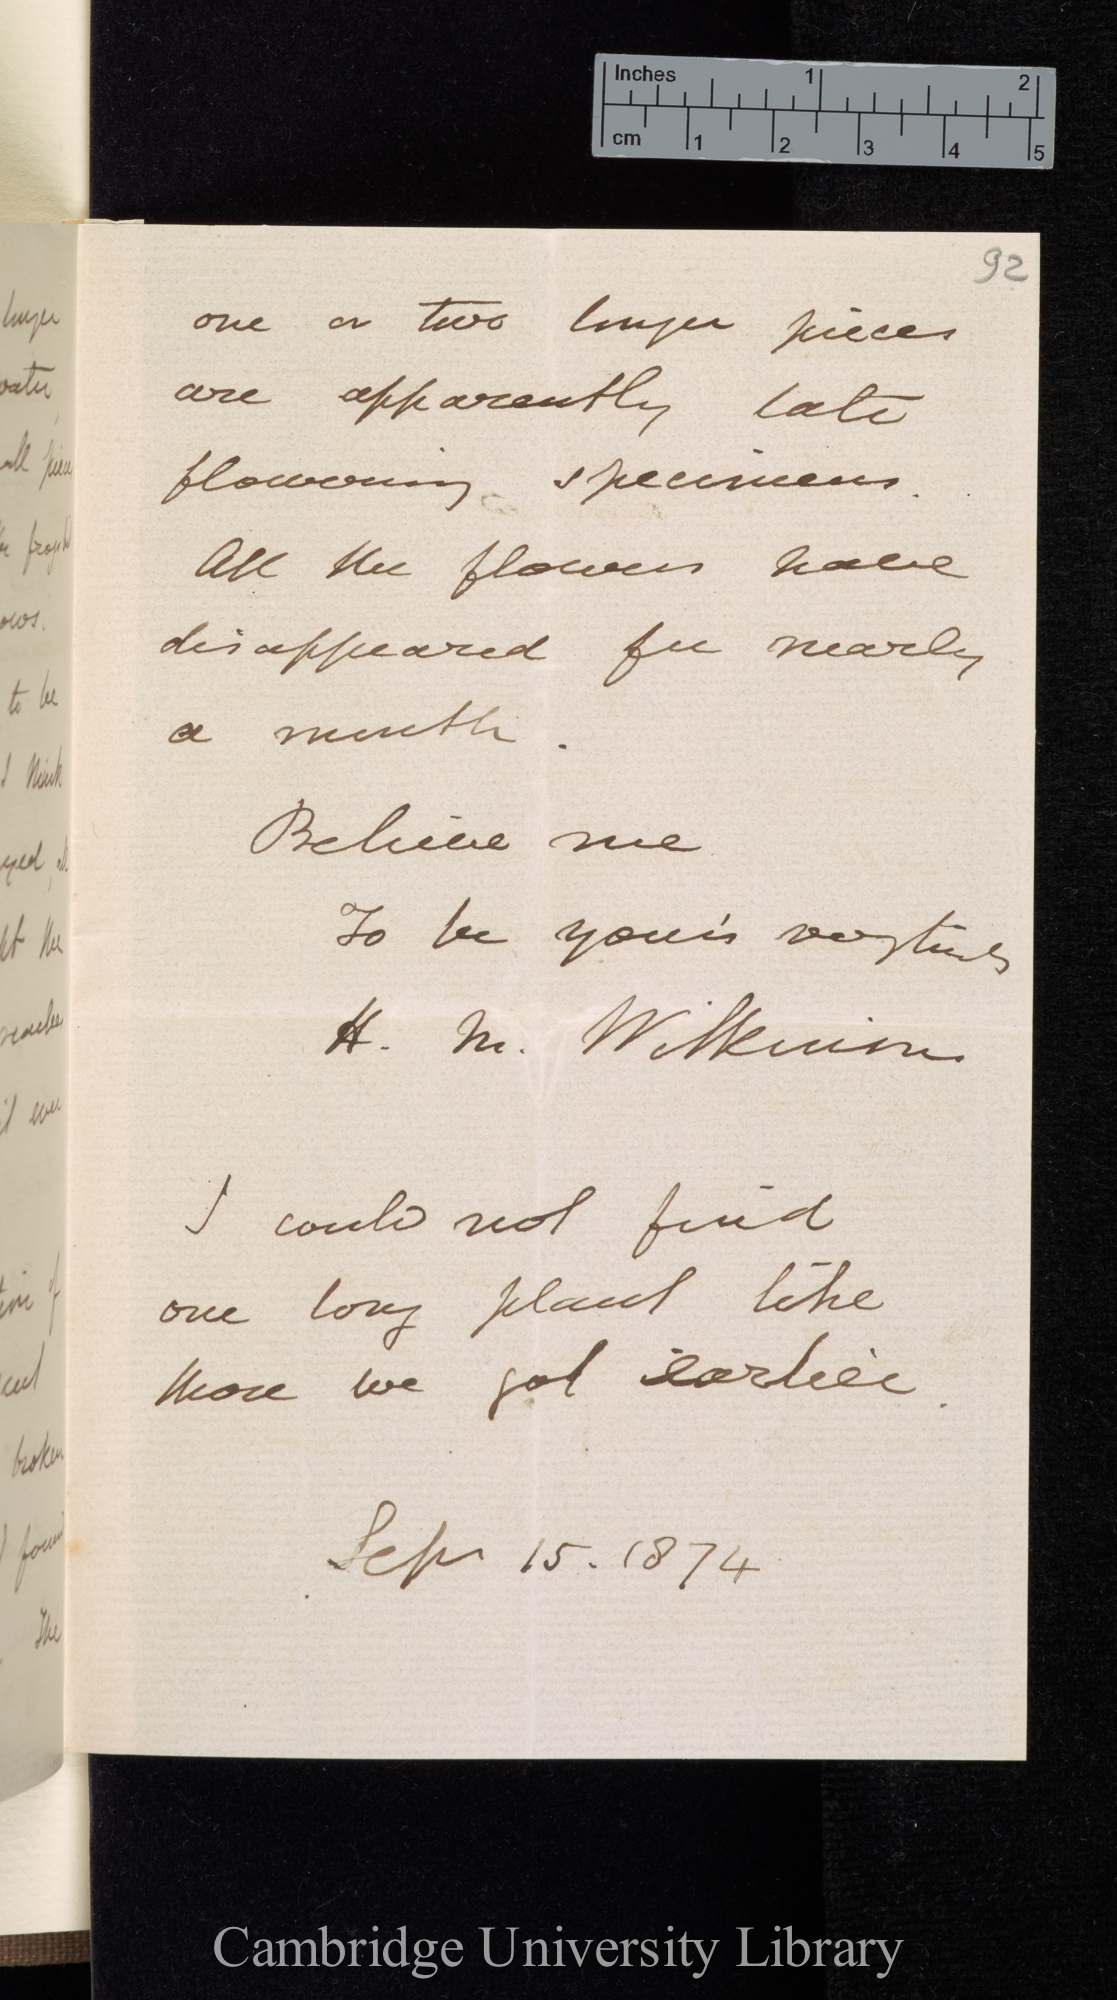 Inches 1 2
cm 1 2 3 4 5
92
one or two longer pieces
are apparently late
flowering specimens.
All the flowers have
disappeared for nearly
a month.
Believe me
To be your's very truly
H. M. Wilkinson
I could not find
one long plant like
those we got earlier.
Sepr 15. 1874
longer
water,
to be
I think
broken
I found
The
Cambridge University Library